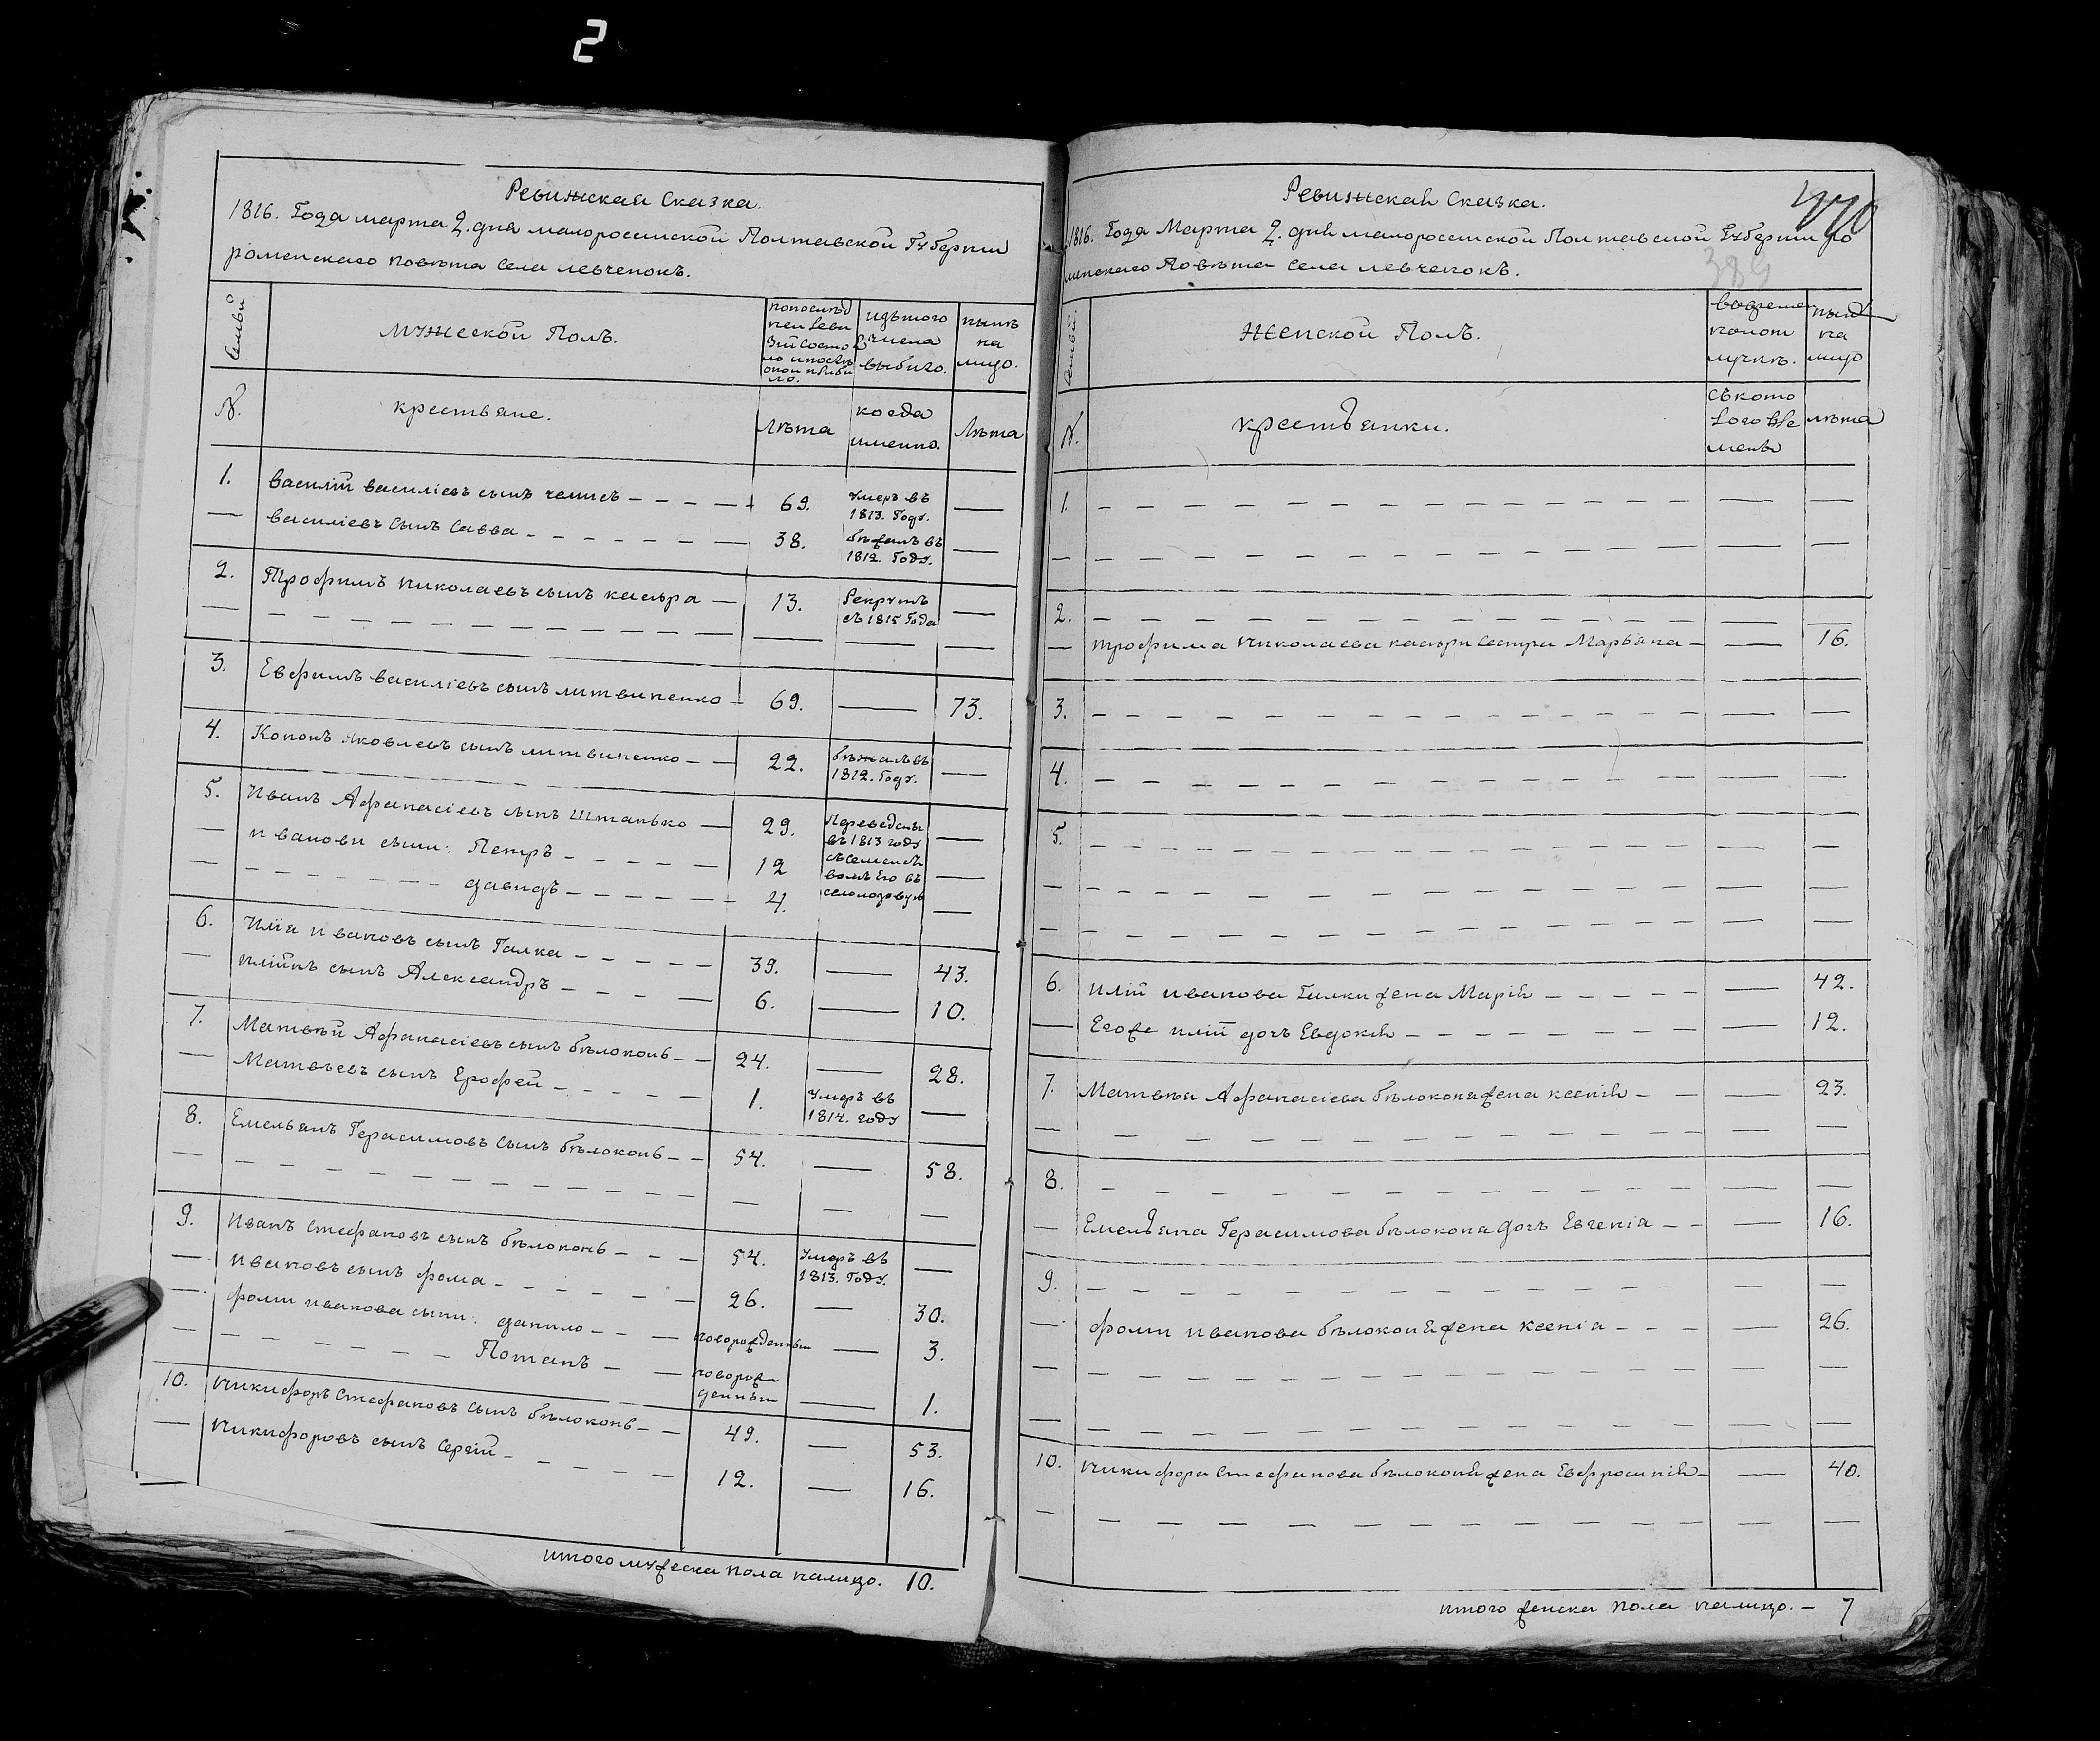 2
Ревижская Сказка.
1816. Года марта 2. дня малоросѣиской Полтавской Губернии
роменскаго повѣта Села левченокъ.
Семьи
мужеской Полъ.
попослѣд
ней Реви
зии состоя
ло и послѣ
оной прибы
ло.
изътого
числа
выбыло.
нынѣ
на
лицо.
№.
крестьяне.
Лѣта
когда
именно.
Лѣта
1. Василій василіевъ сынъ 69. Умеръ въ 1813. Году. —
— василіевъ Сынъ Савва 38. бѣжалъ въ 1812. Году. —
2. Трофимъ николаевъ сынъ касюра 13. Рекрутъ съ 1815 Года —
3. Евфимъ василіевъ сынъ литвиненко 69. — 73.
4. Кононъ Яковлевъ сынъ литвиненко 22. бѣжалъ въ 1812. Году. —
5. Иванъ Афанасіевъ сынъ Штанько 29. Переведены —
въ 1813 году
— ивановы сыны: Петръ 12 съ семейст —
вомъ Его въ
— давидъ 4. —
6. Илія ивановъ сынъ Галка 39. — 43.
— иліинъ сынъ Александръ 6. — 10.
7. Матвѣй Афанасіевъ сынъ бѣлоконь 24. — 28.
— Матвѣевъ сынъ Ерофей 1. Умеръ въ 1814. году —
8. Емельянъ Герасимовъ сынъ бѣлоконь 54. — 58.
9. Иванъ Стефановъ сынъ бѣлоконь 54. Умеръ въ 1813. Году. —
— ивановъ сынъ фома 26. — 30.
— фомы иванова сыны: данило новорожденный — 3.
— Потапъ новорожденный — 1.
10. Никифоръ Стефановъ сынъ бѣлоконь 49. — 53.
— Никифоровъ сынъ Сергій 12. — 16.
итого мужеска пола налицо. 10.
Ревижская Сказка.
470
1816. Года Марта 2. дня малоросѣиской Полтавской Губернии ро
менскаго Повѣта Села левченокъ.
389
Семьи.
женской Полъ.
вовремен
ной от
лучкѣ.
нынѣ
на
лицо
№.
крестьянки.
съ кото
рого вре
мени
лѣта
1.
2.
— трофима николаева касюри сестра Марьяна — 16.
3.
4.
5.
6. иліи иванова Галки жена Марія — 42.
— Егоже иліи дочь Евдокія — 12.
7. Матвѣя Афанасіева бѣлоконя жена ксенія — 23.
8.
— Емельяна Герасимова бѣлоконя дочь Евгенія — 16.
9.
— фомы иванова бѣлоконя жена ксенія — 26.
10. Никифора Стефанова бѣлоконя жена Евфросинія — 40.
итого женска пола налицо. — 7